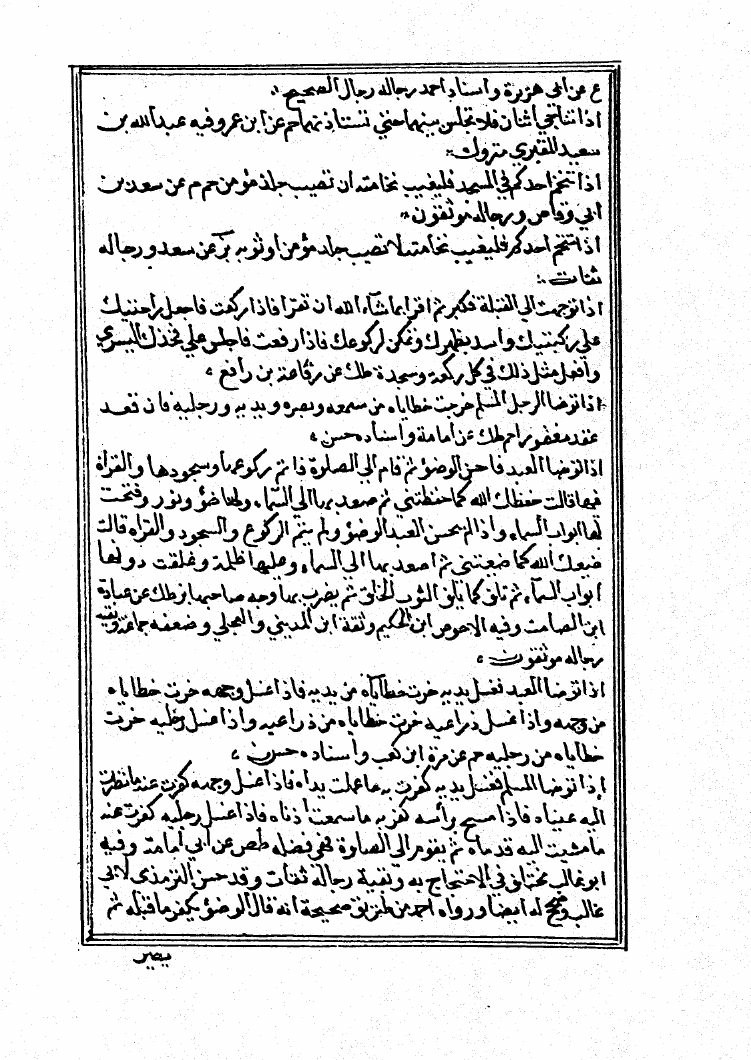 ع عن ابى هريرة واسناد احمد رجاله رجال الصحيح
اذا تناجى اثنان فلا تجلس بينهما حتى تستاذنهما حم عن ابن عمر وفيه عبد الله بن
سعيد المقبرى متروك
اذا تنخم احدكم في المسجد فليغيب نخامته ان تصيب جلد مؤمن حم م عن سعد بن
ابى وقاص ورجاله موثقون
اذا تنخم احدكم فليغيب نخامته لا تصيب جلد مؤمن او ثوبه بز عن سعد ورجاله
ثقات
اذا توجهت الى القبلة فكبر ثم اقرا بما شآء الله ان تقرا فاذا ركعت فاجعل راحتيك
على ركبتيك وامدد ظهرك ومكن لركوعك فاذا رفعت فاجلس على فخذك اليسرى
وافعل مثل ذلك في كل ركعة وسجدة طك عن رفاعة بن رافع
اذا توضا الرجل المسلم خرجت خطاياه من سمعه وبصره ويديه ورجليه فان قعد
قعد مغفورا حم طك عن امامة واسناده حسن
اذا توضا العبد فاحسن الوضؤ ثم قام الى الصلوة فاتم ركوعها وسجودها والقراة
فيها قالت حفظك الله كما حفظتني ثم صعد بها الى السمآء ولها ضؤ ونور وفتحت
لها ابواب السمآء واذا لم يحسن العبد الوضؤ ولم يتم الركوع والسجود والقراة قالت
ضيعك الله كما ضيعتني ثم اصعد بها الى السمآء وعليها ظلمة وغلقت دونها
ابواب السمآء ثم تلف كما يلف الثوب الخلق ثم يضرب بها وجه صاحبها بز طك عن عبادة
ابن الصامت وفيه الاحوص ابن الحكيم وثقة ابن المديني والعجلى وضعفه جماعة وبقية
رجاله موثقون
اذا توضا العبد فغسل يديه خرت خطاياه من يديه فاذا غسل وجهه خرت خطاياه
من وجهه واذا غسل ذراعيه خرت خطاياه من ذراعيه واذا غسل رجليه خرت
خطاياه من رجليه حم عن مرة ابن كعب واسناده حسن
اذا توضا المسلم فغسل يديه كفرت به ما عملت يداه فاذا غسل وجهه كفرت عنه ما نظرت
اليه عيناه فاذا مسح براسه كفر به ما سمعت اذناه فاذا غسل رجليه كفرت عنه
ما مشيت اليه قدماه ثم يقوم الى الصلوة فهي فضيلة طص عن ابى امامة وفيه
ابو غالب مختلف في الاحتجاج به وبقية رجاله ثقات وقد حسن الترمذى لابى
غالب وصحح له ايضا ورواه احمد من طريق صحيحة انه قال الوضؤ يكفر ما قبله ثم
يصير